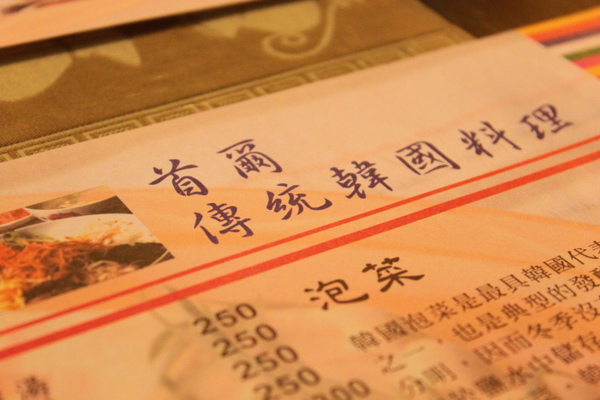 首爾
傳統韓國料理
泡菜
250
250
250
250
韓國泡菜是最具韓國代表
之一，也是典型的發酵
分明，因而冬季沒
鹽水中儲存